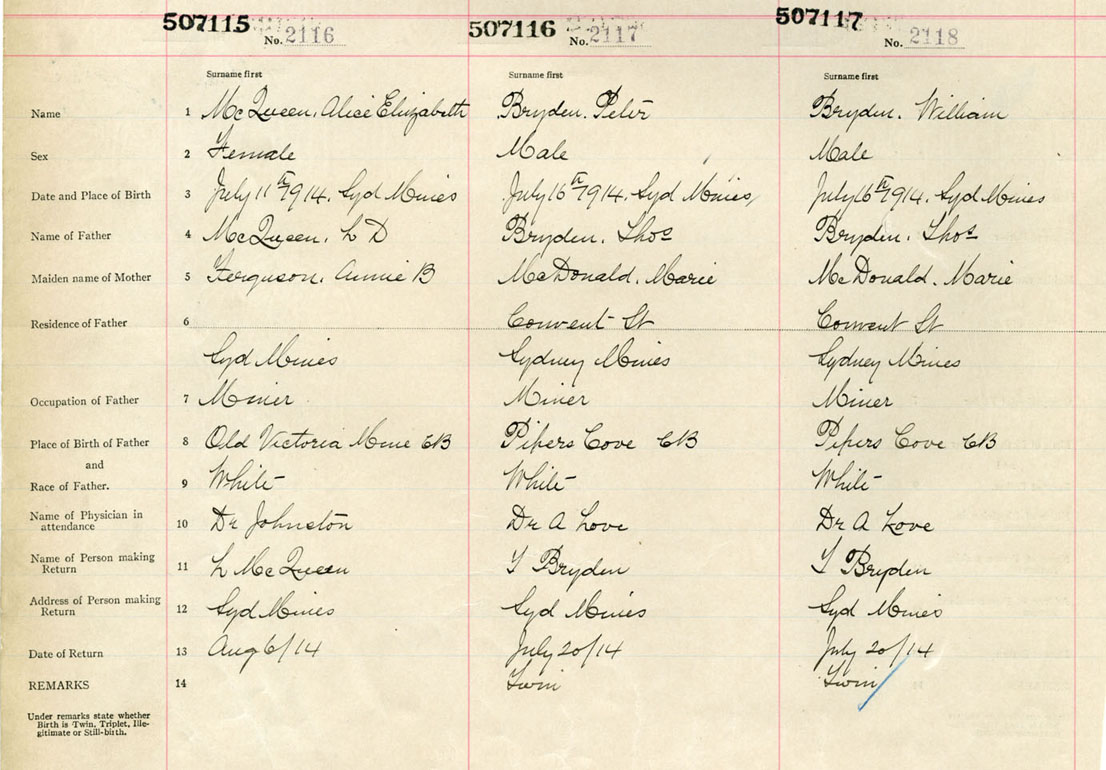 507115 No. 2116 507116 No. 2117 507117 No. 2118
Surname first Surname first Surname first
Name 1 McQueen, Alice Elizabeth Bryden. Peter Bryden. William
Sex 2 Female Male Male
Date and Place of Birth 3 July 11th 1914. Syd Mines July 16th 1914. Syd Mines, July 16th 1914. Syd Mines
Name of Father 4 McQueen. L D Bryden. Thos Bryden. Thos
Maiden name of Mother 5 Ferguson. Annie B McDonald. Marie McDonald. Marie
Residence of Father 6 Convent St Convent St
Syd Mines Sydney Mines Sydney Mines
Occupation of Father 7 Miner Miner Miner
Place of Birth of Father 8 Old Victoria Mine CB Pipers Cove CB Pipers Cove CB
and
Race of Father. 9 White White White
Name of Physician in
attendance 10 Dr Johnston Dr A Love Dr A Love
Name of Person making
Return 11 L McQueen T Bryden T Bryden
Address of Person making
Return 12 Syd Mines Syd Mines Syd Mines
Date of Return 13 Aug 6/14 July 20/14 July 20/14
REMARKS 14 Twin Twin
Under remarks state whether
Birth is Twin, Triplet, Ille-
gitimate or Still-birth.